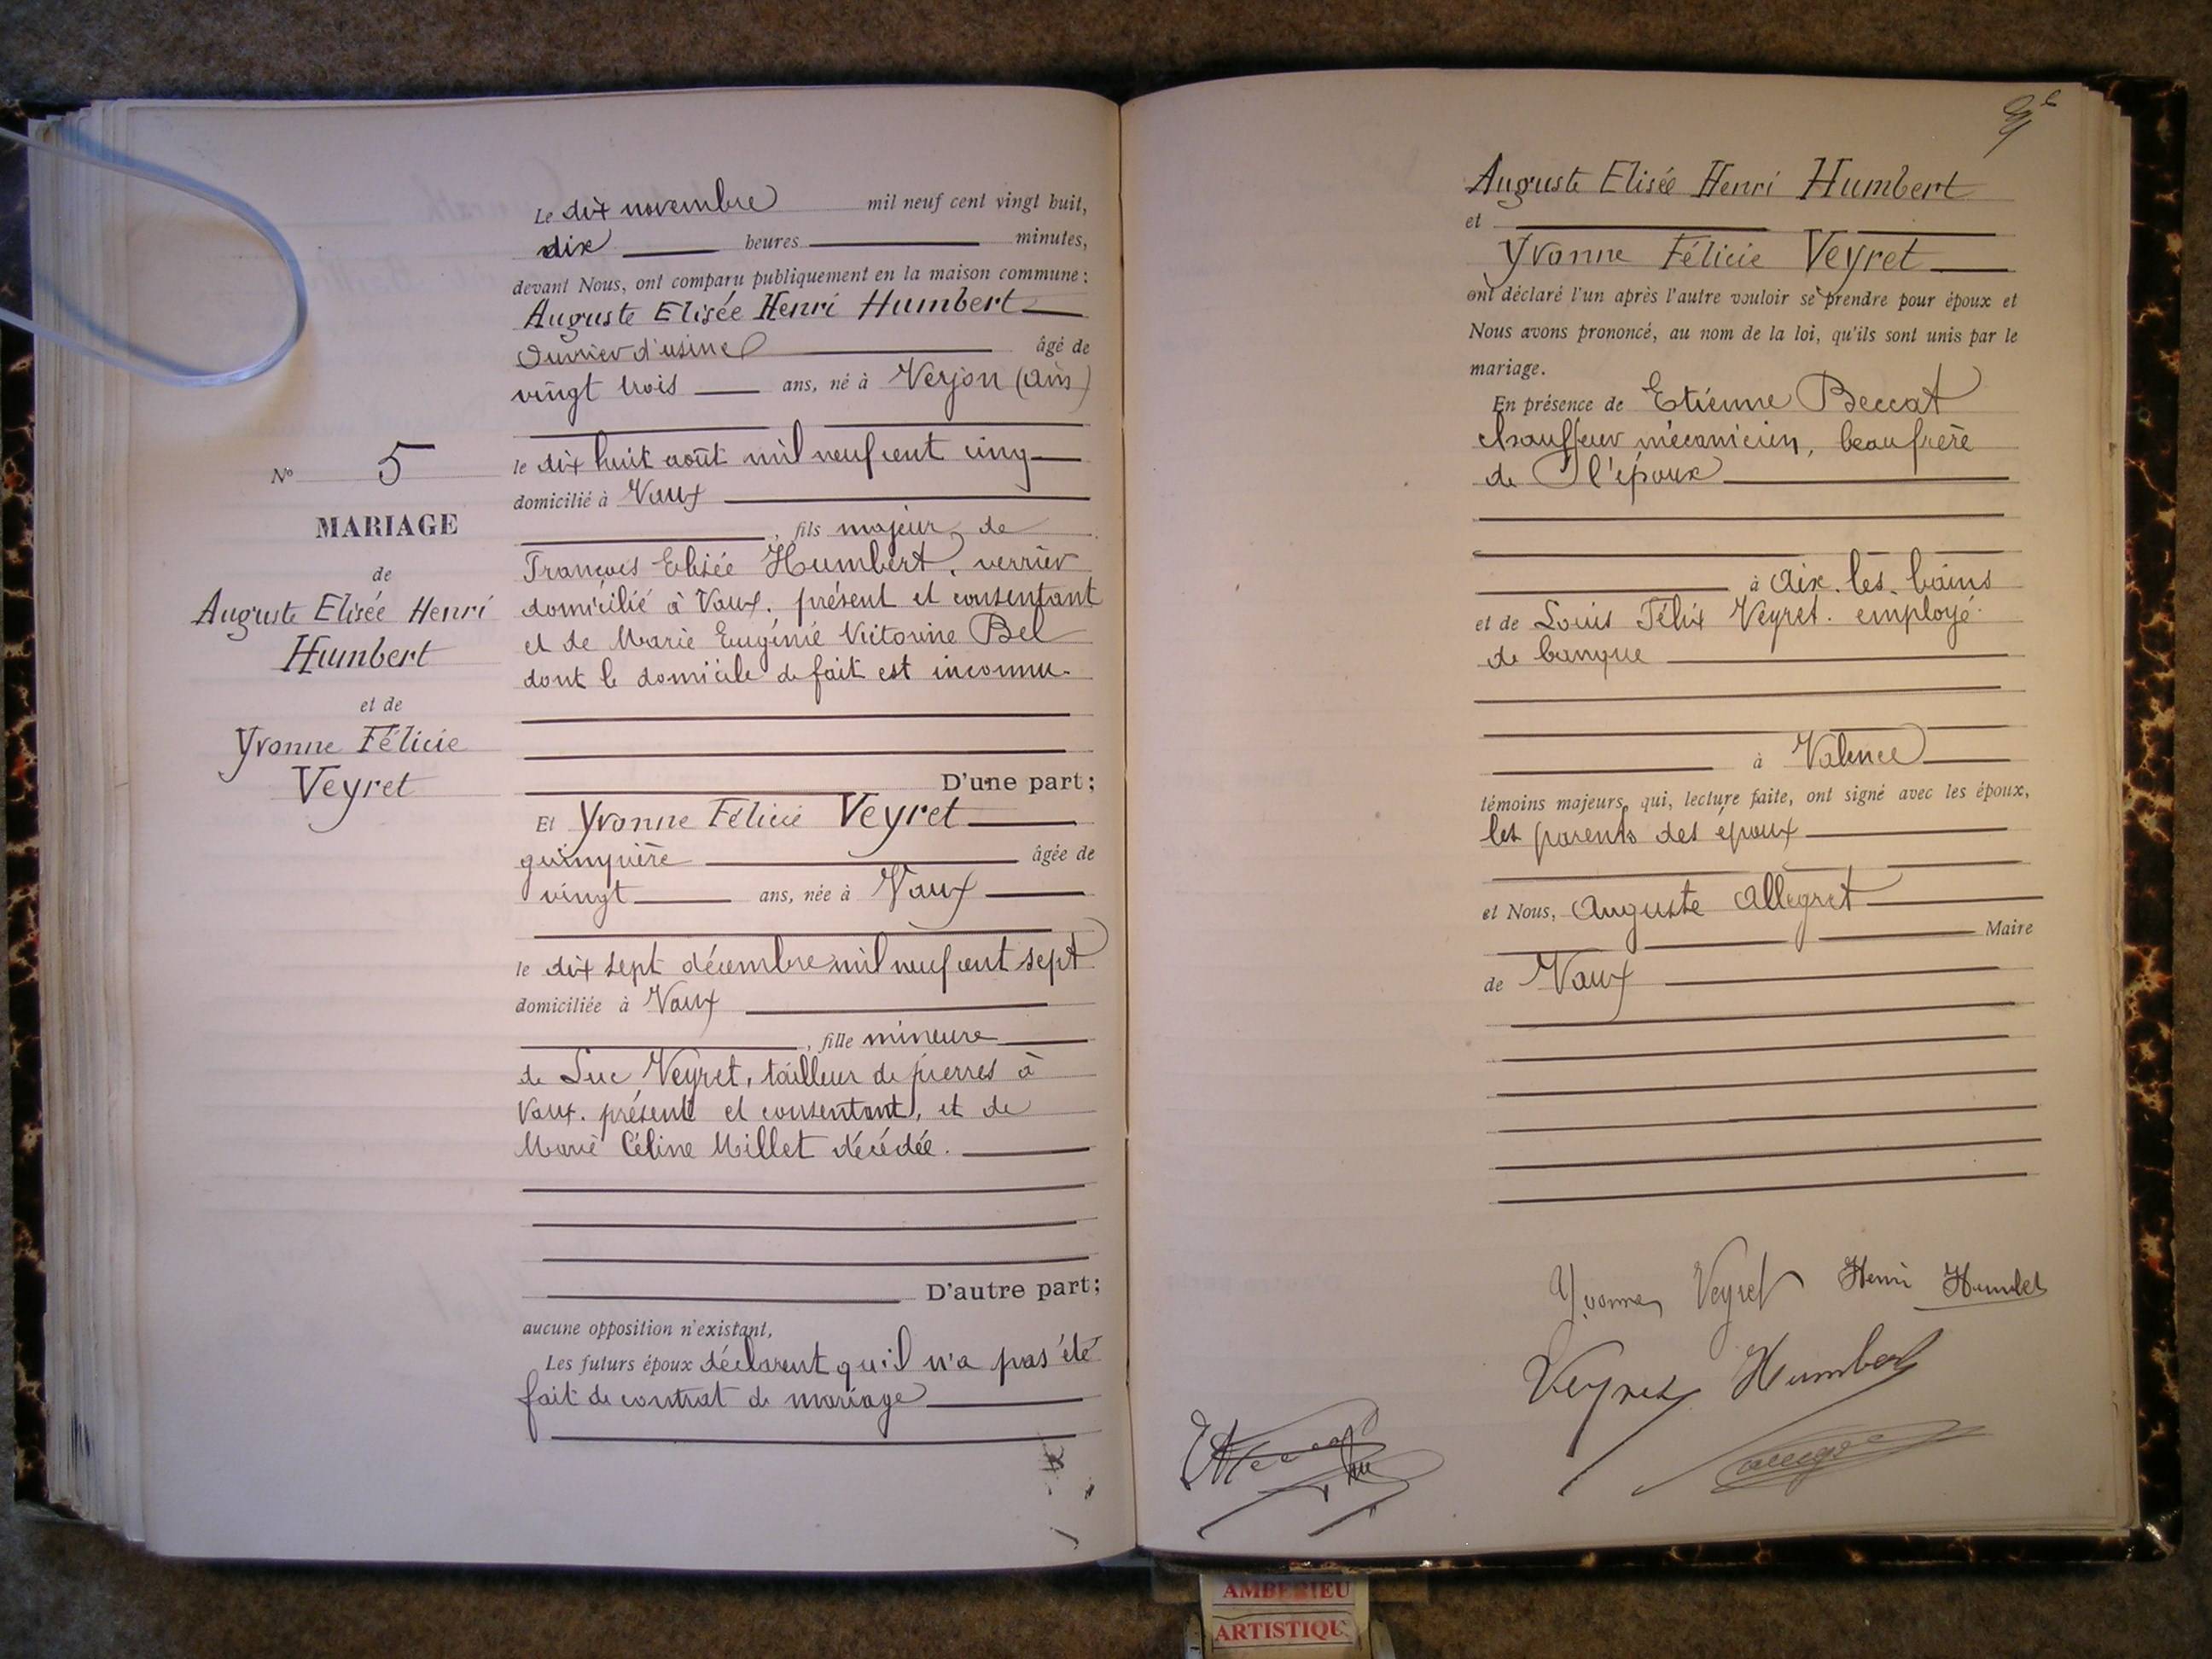 Le dix novembre mil neuf cent vingt huit,
dix heures minutes,
devant Nous, ont comparu publiquement en la maison commune :
Auguste Elisée Henri Humbert
Ouvrier d'usine âgé de
vingt trois ans, né à Verjon (Ain)
le dix huit août mil neuf cent cinq
domicilié à Vaux
, fils majeur de
François Elisée Humbert, verrier
domicilié à Vaux. présent et consentant
et de Marie Eugénie Victorine Bel
dont le domicile de fait est inconnu.
D'une part ;
Et Yvonne Félicie Veyret
guimpière âgée de
vingt ans, née à Vaux
le dix sept décembre mil neuf cent sept
domiciliée à Vaux
, fille mineure
de Luc Veyret, tailleur de pierres à
Vaux. présent et consentant, et de
Marie Céline Millet décédée.
D'autre part ;
aucune opposition n'existant,
Les futurs époux déclarent qu'il n'a pas été
fait de contrat de mariage
N° 5
MARIAGE
de
Auguste Elisée Henri
Humbert
et de
Yvonne Félicie
Veyret
Auguste Elisée Henri Humbert
et
Yvonne Félicie Veyret
ont déclaré l'un après l'autre vouloir se prendre pour époux et
Nous avons prononcé, au nom de la loi, qu'ils sont unis par le
mariage.
En présence de Etienne Beccat
chauffeur mécanicien, beau frère
de l'époux
à Aix. les. bains
et de Louis Félix Veyret. employé
de banque
à Valence
témoins majeurs, qui, lecture faite, ont signé avec les époux,
les parents des époux
et Nous, Auguste Allegret
Maire
de Vaux
Yvonne Veyret Henri Humbert
Veyret Humbert
AMBERIEU
ARTISTIQU